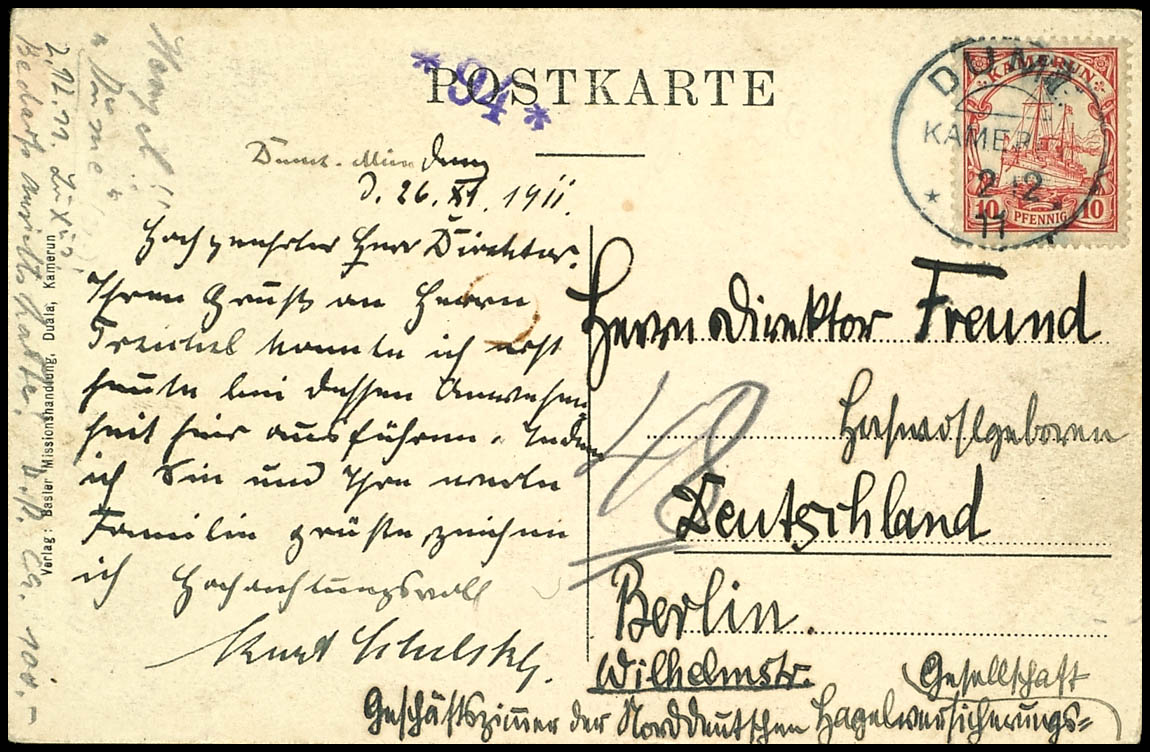 *94*
POSTKARTE
KAMERUN
10 PFENNIG 10
DUME
KAMERUN
2 12
11
Dume-Mündung
d. 26. XI. 1911.
Hochgeehrter Herr Direktor.
Ihren Gruß an Herrn
Treichel konnte ich erst
heute bei dessen Anwesen
heit hier ausführen. Indem
ich Sie und Ihre werte
Familie grüße, zeichne
ich Hochachtungsvoll
Kurt
Herrn Direktor Freund
Hochwohlgeboren
Deutschland
Berlin.
Wilhelmstr.
Geschäftszimmer der Norddeutschen Hagelversicherungs=
Gesellschaft
48
Verlag: Basler Missionshandlung, Duala, Kamerun
"Dume"
2.12.11.